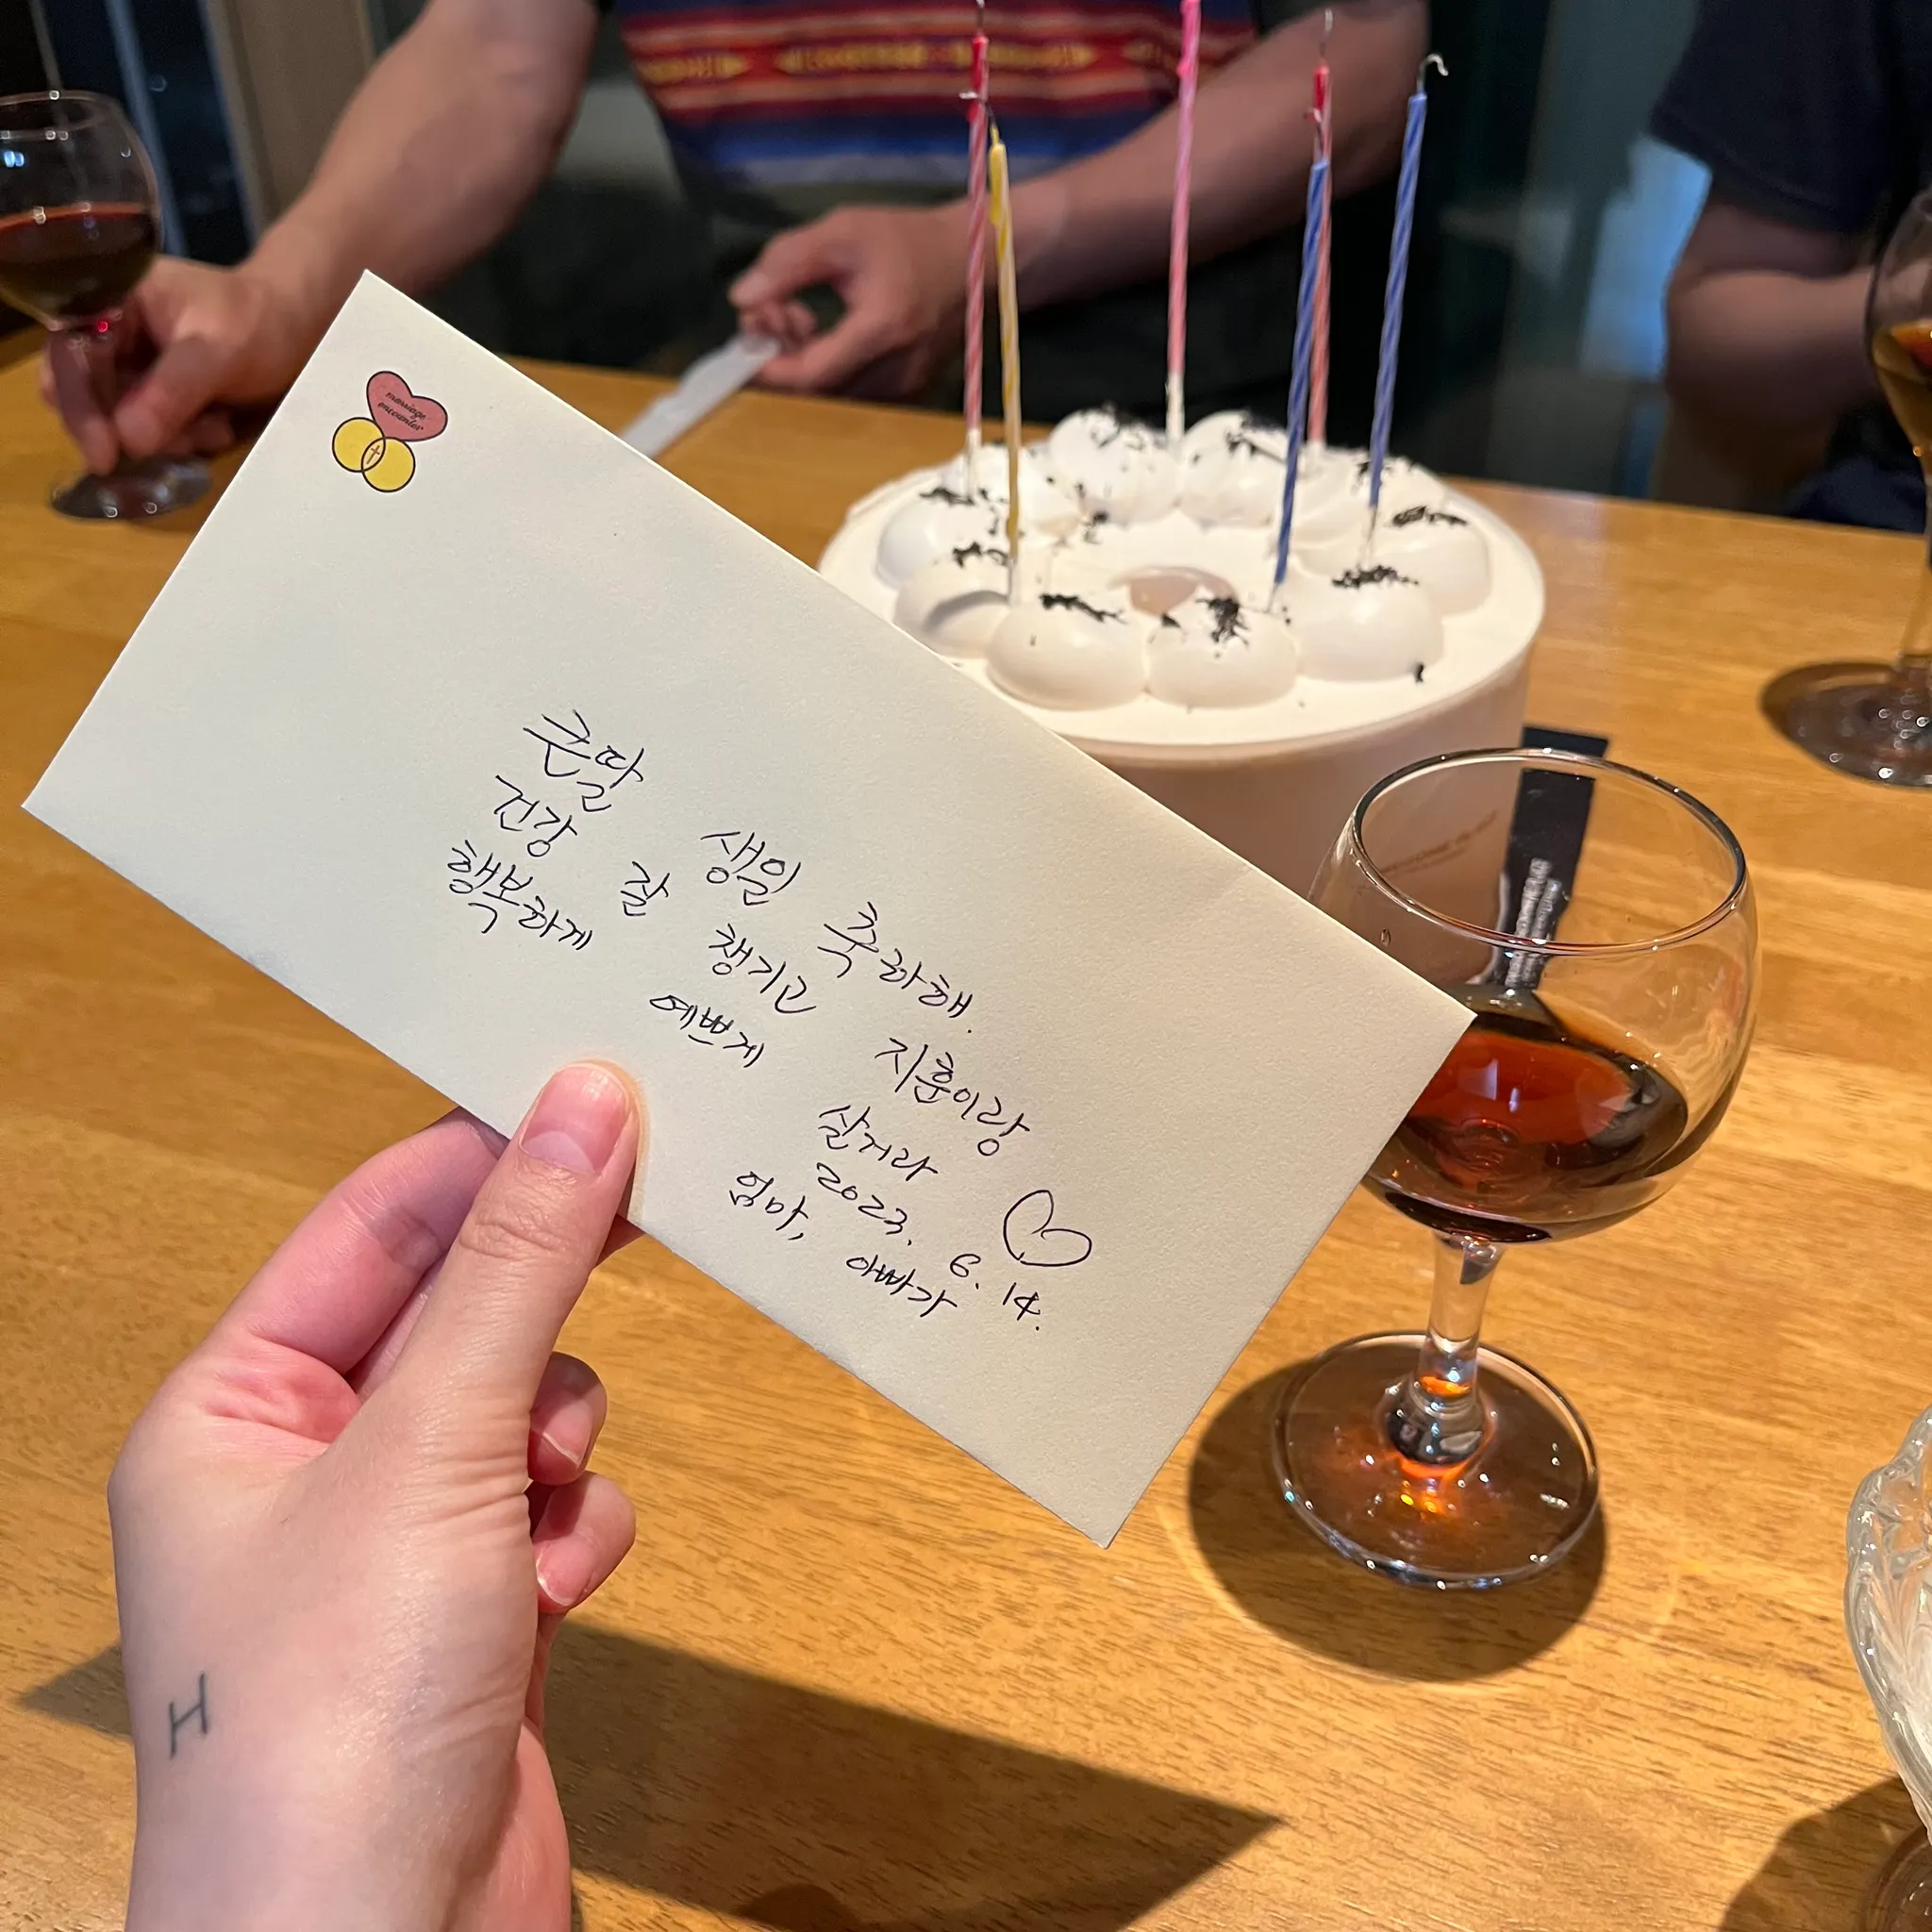 marriage
encounter
큰딸 생일 축하해.
건강 잘 챙기고 지훈이랑
행복하게 예쁘게 살거라
2023. 6. 14.
엄마, 아빠가
H